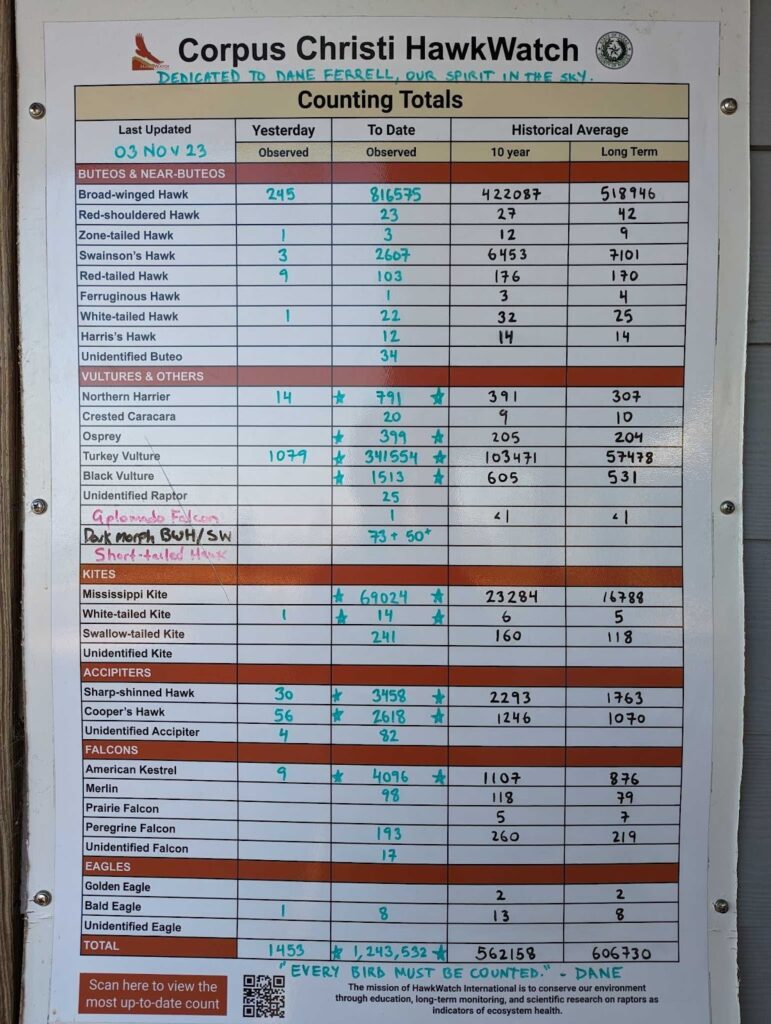 Corpus Christi HawkWatch
DEDICATED TO DANE FERRELL, OUR SPIRIT IN THE SKY.
Counting Totals
Last Updated Yesterday To Date Historical Average
03 NOV 23 Observed Observed 10 year Long Term
BUTEOS & NEAR-BUTEOS
Broad-winged Hawk 245 816575 422087 518946
Red-shouldered Hawk 23 27 42
Zone-tailed Hawk 1 3 12 9
Swainson's Hawk 3 2607 6453 7101
Red-tailed Hawk 9 103 176 170
Ferruginous Hawk 1 3 4
White-tailed Hawk 1 22 32 25
Harris's Hawk 12 14 14
Unidentified Buteo 34
VULTURES & OTHERS
Northern Harrier 14 ★ 791 ★ 391 307
Crested Caracara 20 9 10
Osprey ★ 399 ★ 205 204
Turkey Vulture 1079 ★ 341554 ★ 103471 57478
Black Vulture ★ 1513 ★ 605 531
Unidentified Raptor 25
Aplomado Falcon 1 <1 <1
Dark morph BWH/SW 73 + 50+
Short-tailed Hawk
KITES
Mississippi Kite ★ 69024 ★ 23284 16788
White-tailed Kite 1 ★ 14 ★ 6 5
Swallow-tailed Kite 241 160 118
Unidentified Kite
ACCIPITERS
Sharp-shinned Hawk 30 ★ 3458 ★ 2293 1763
Cooper's Hawk 56 ★ 2618 ★ 1246 1070
Unidentified Accipiter 4 82
FALCONS
American Kestrel 9 ★ 4096 ★ 1107 876
Merlin 98 118 79
Prairie Falcon 5 7
Peregrine Falcon 193 260 219
Unidentified Falcon 17
EAGLES
Golden Eagle 2 2
Bald Eagle 1 8 13 8
Unidentified Eagle
TOTAL 1453 ★ 1,243,532 ★ 562158 606730
"EVERY BIRD MUST BE COUNTED." - DANE
Scan here to view the
most up-to-date count
The mission of HawkWatch International is to conserve our environment
through education, long-term monitoring, and scientific research on raptors as
indicators of ecosystem health.